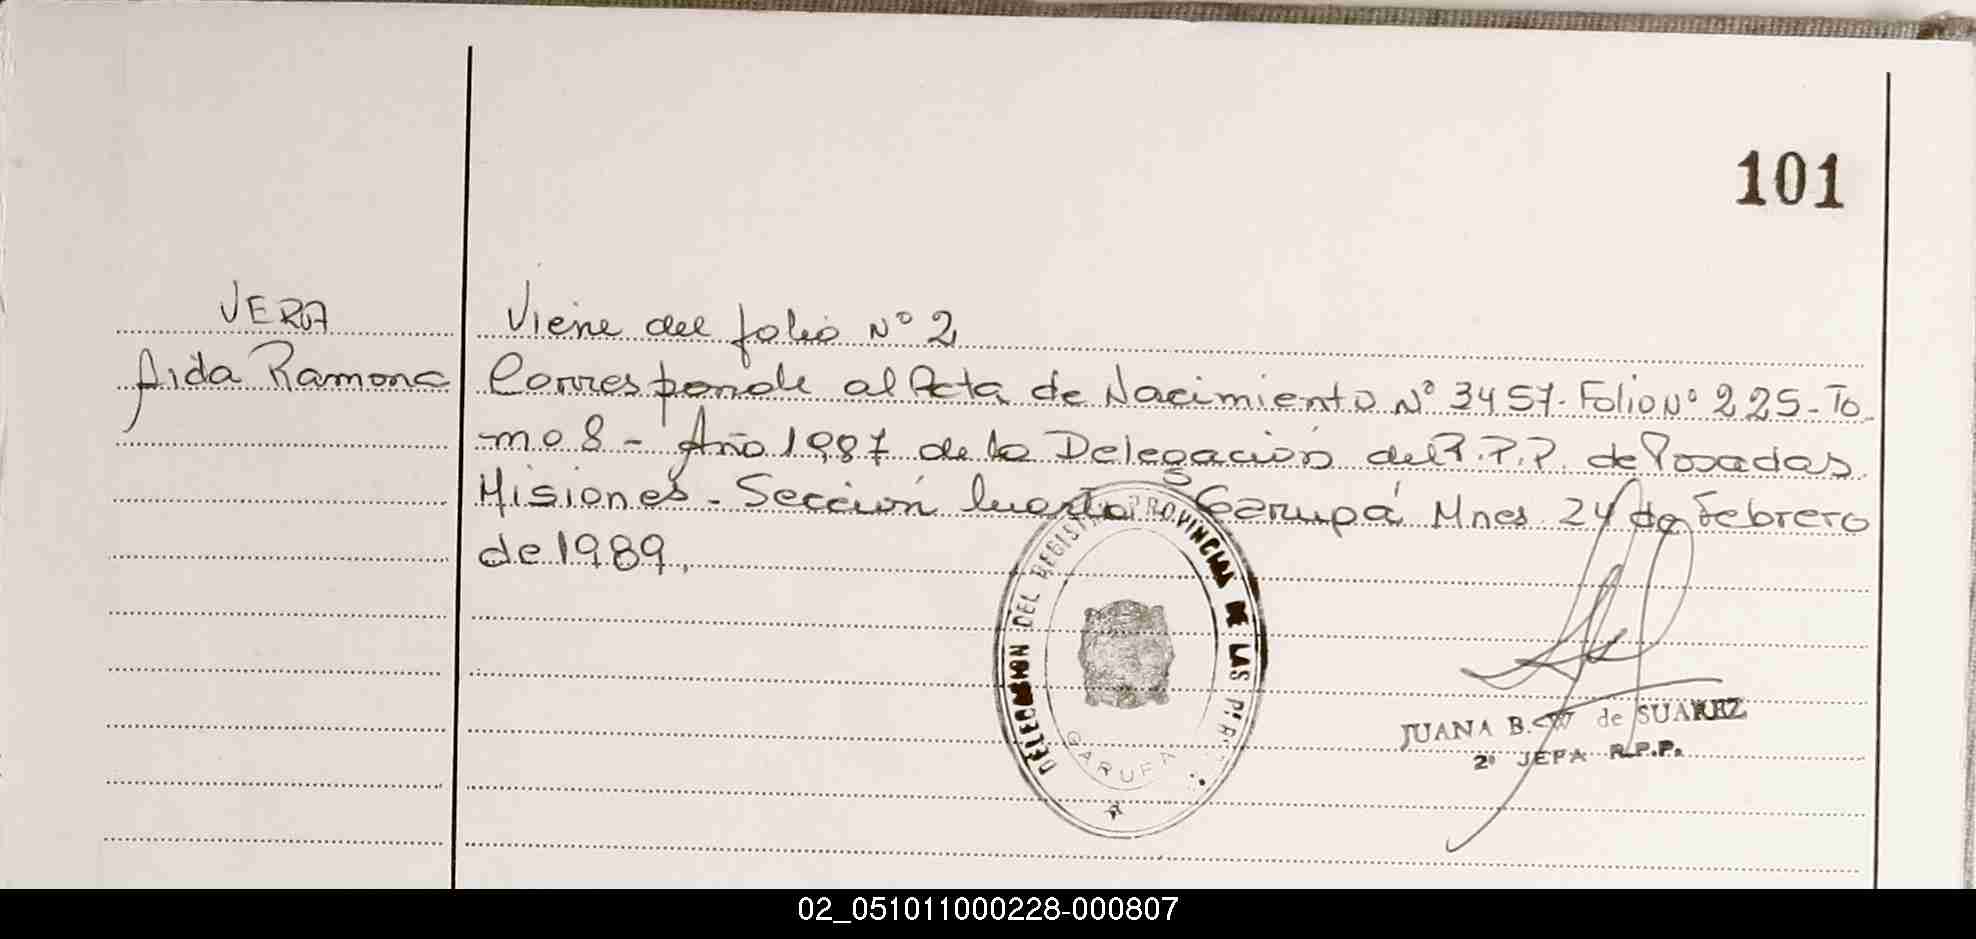 101
VERA
Aida Ramona
Viene del folio Nº 2
Corresponde al Acta de Nacimiento Nº 3457. Folio Nº 225 - To-
-mo 8 - Año 1987 de la Delegación del R.P.P. de Posadas
Misiones - Sección Cuarta Garupá Mnes. 24 de Febrero
de 1989,
DELEGACION DEL REGISTRO PROVINCIAL DE LAS P.
GARUPA
JUANA B. de SUAREZ
2º JEFA R.P.P.
02_051011000228-000807